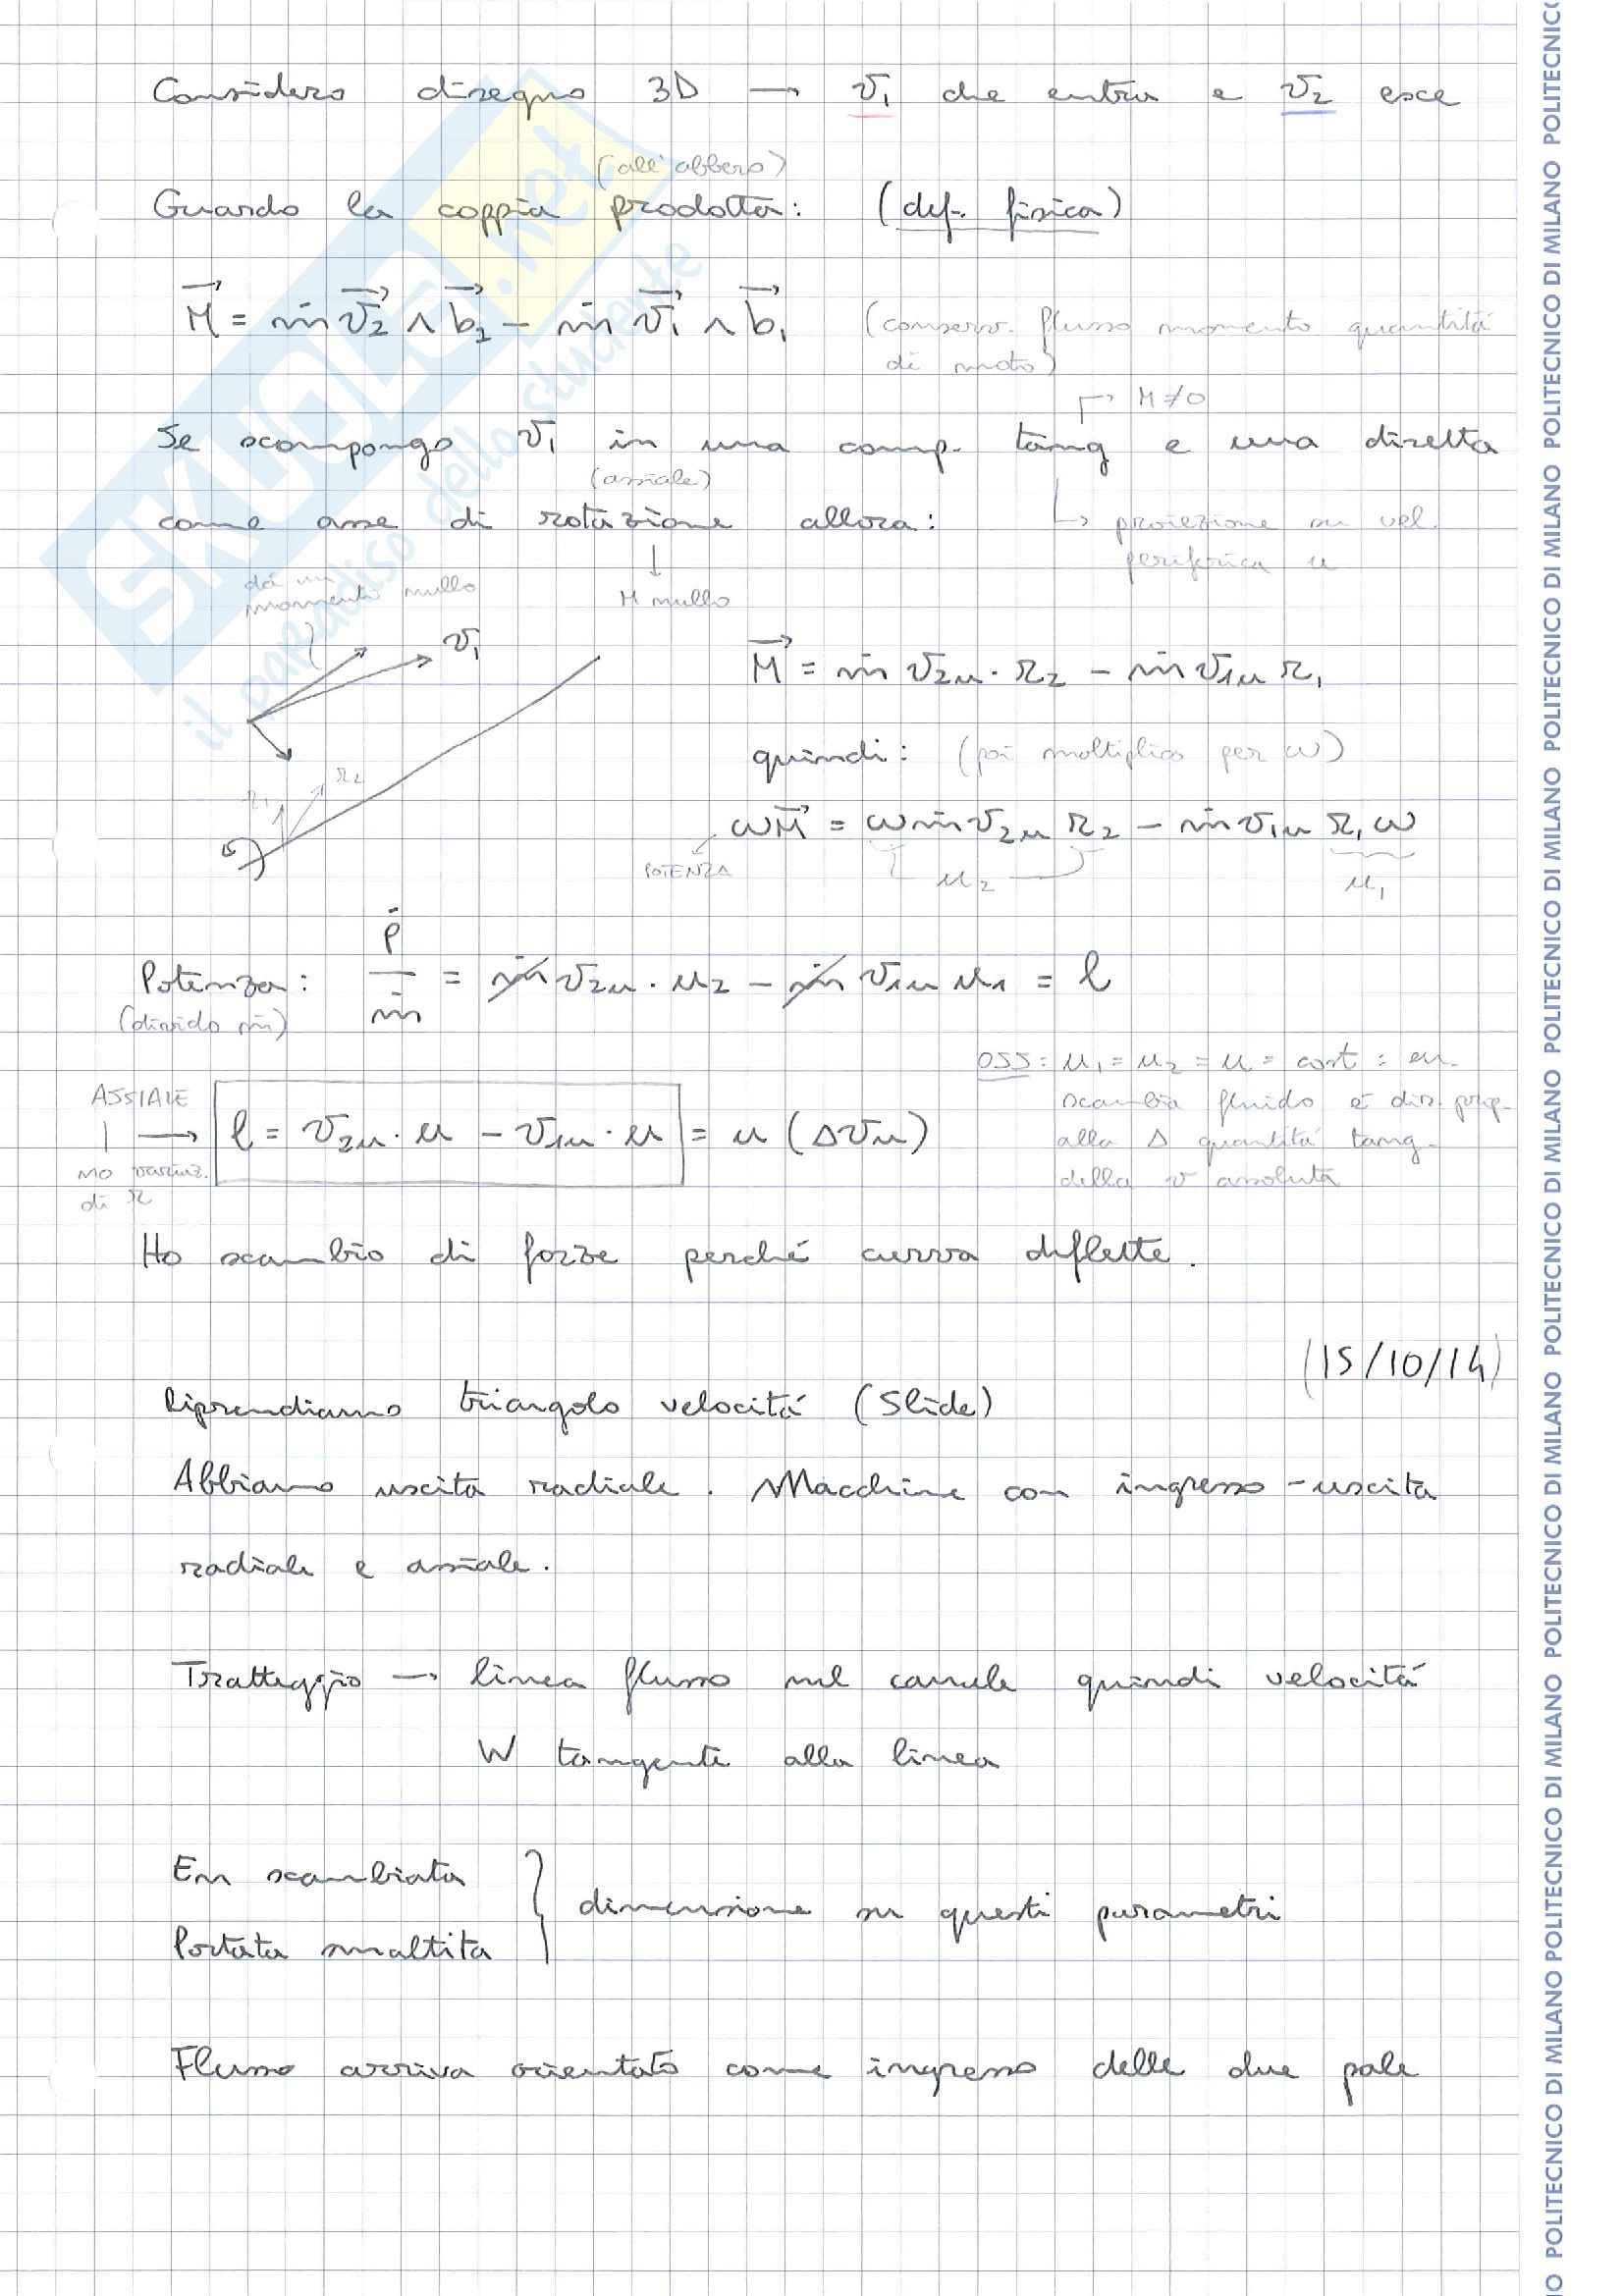 Considero disegno 3D → v₁ che entra e v₂ esce
(all'albero)
Guardo la coppia prodotta: (def. fisica)
M⃗ = ṁ v⃗₂ ∧ b⃗₂ − ṁ v⃗₁ ∧ b⃗₁ (conserv. flusso momento quantità
di moto)
↱ M≠0
Se scompongo v₁ in una comp. tang e una diretta
(assiale)
come asse di rotazione allora: ↳ proiezione su vel.
periferica u
↓
M nullo
dà un
momento nullo
v₁
r₁ r₂
M⃗ = ṁ v₂ᵤ · r₂ − ṁ v₁ᵤ r₁
quindi: (poi moltiplico per ω)
ωM⃗ = ω ṁ v₂ᵤ r₂ − ṁ v₁ᵤ r₁ ω
POTENZA
u₂ u₁
Potenza: Ṗ/ṁ = ṁ v₂ᵤ · u₂ − ṁ v₁ᵤ u₁ = l
(divido ṁ)
OSS: u₁ = u₂ = u = cost : en.
scambia fluido è dir. prop.
alla Δ quantità tang.
della v assoluta
ASSIALE
→ l = v₂ᵤ · u − v₁ᵤ · u = u (Δvᵤ)
no variaz.
di r
Ho scambio di forze perché curva diflette.
(15/10/14)
Riprendiamo triangolo velocità (Slide)
Abbiamo uscita radiale. Macchine con ingresso-uscita
radiale e assiale.
Tratteggio → linea flusso nel canale quindi velocità
W tangente alla linea
En scambiata
Portata smaltita
} dimensione su questi parametri
Flusso arriva orientato come ingresso delle due pale
SKUOLA.net
il paradiso dello studente
POLITECNICO DI MILANO POLITECNICO DI MILANO POLITECNICO DI MILANO POLITECNICO DI MILANO POLITECNICO DI MILANO POLITECNICO DI MILANO POLITECNICO DI MILANO POLITECNIC